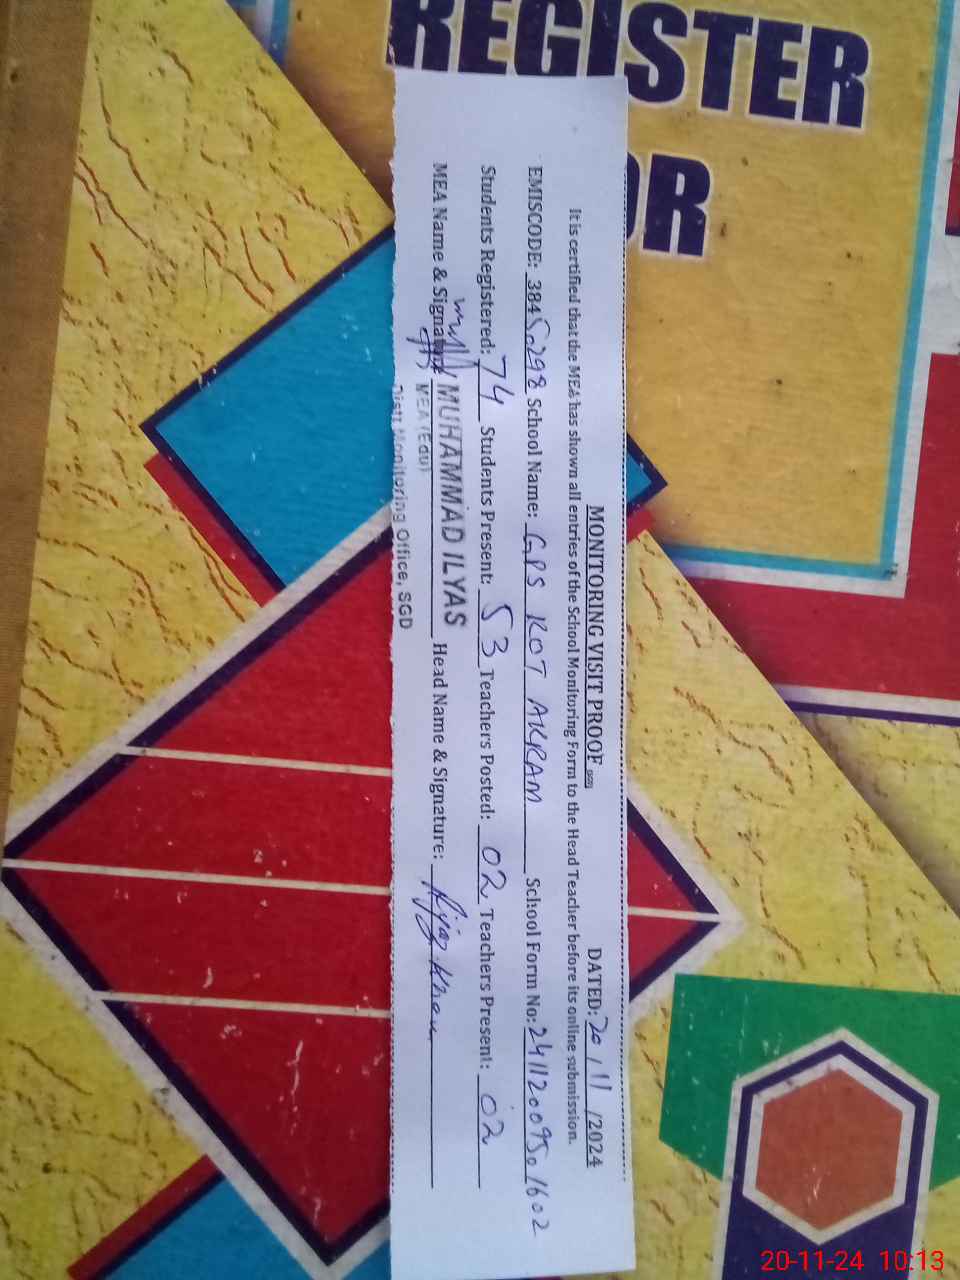 REGISTER
OR
MONITORING VISIT PROOF
DATED: 20/11/2024
It is certified that the MEA has shown all entries of the School Monitoring Form to the Head Teacher before its online submission.
EMISCODE: 3845.298 School Name: GPS KOT AKRAM School Form No: 241120095.1602
Students Registered: 74 Students Present: 53 Teachers Posted: 02 Teachers Present: 02
MEA Name & Signature MUHAMMAD ILYAS Head Name & Signature: Khan
MEA (Edu)
Distt Monitoring Office, SGD
20-11-24 10:13